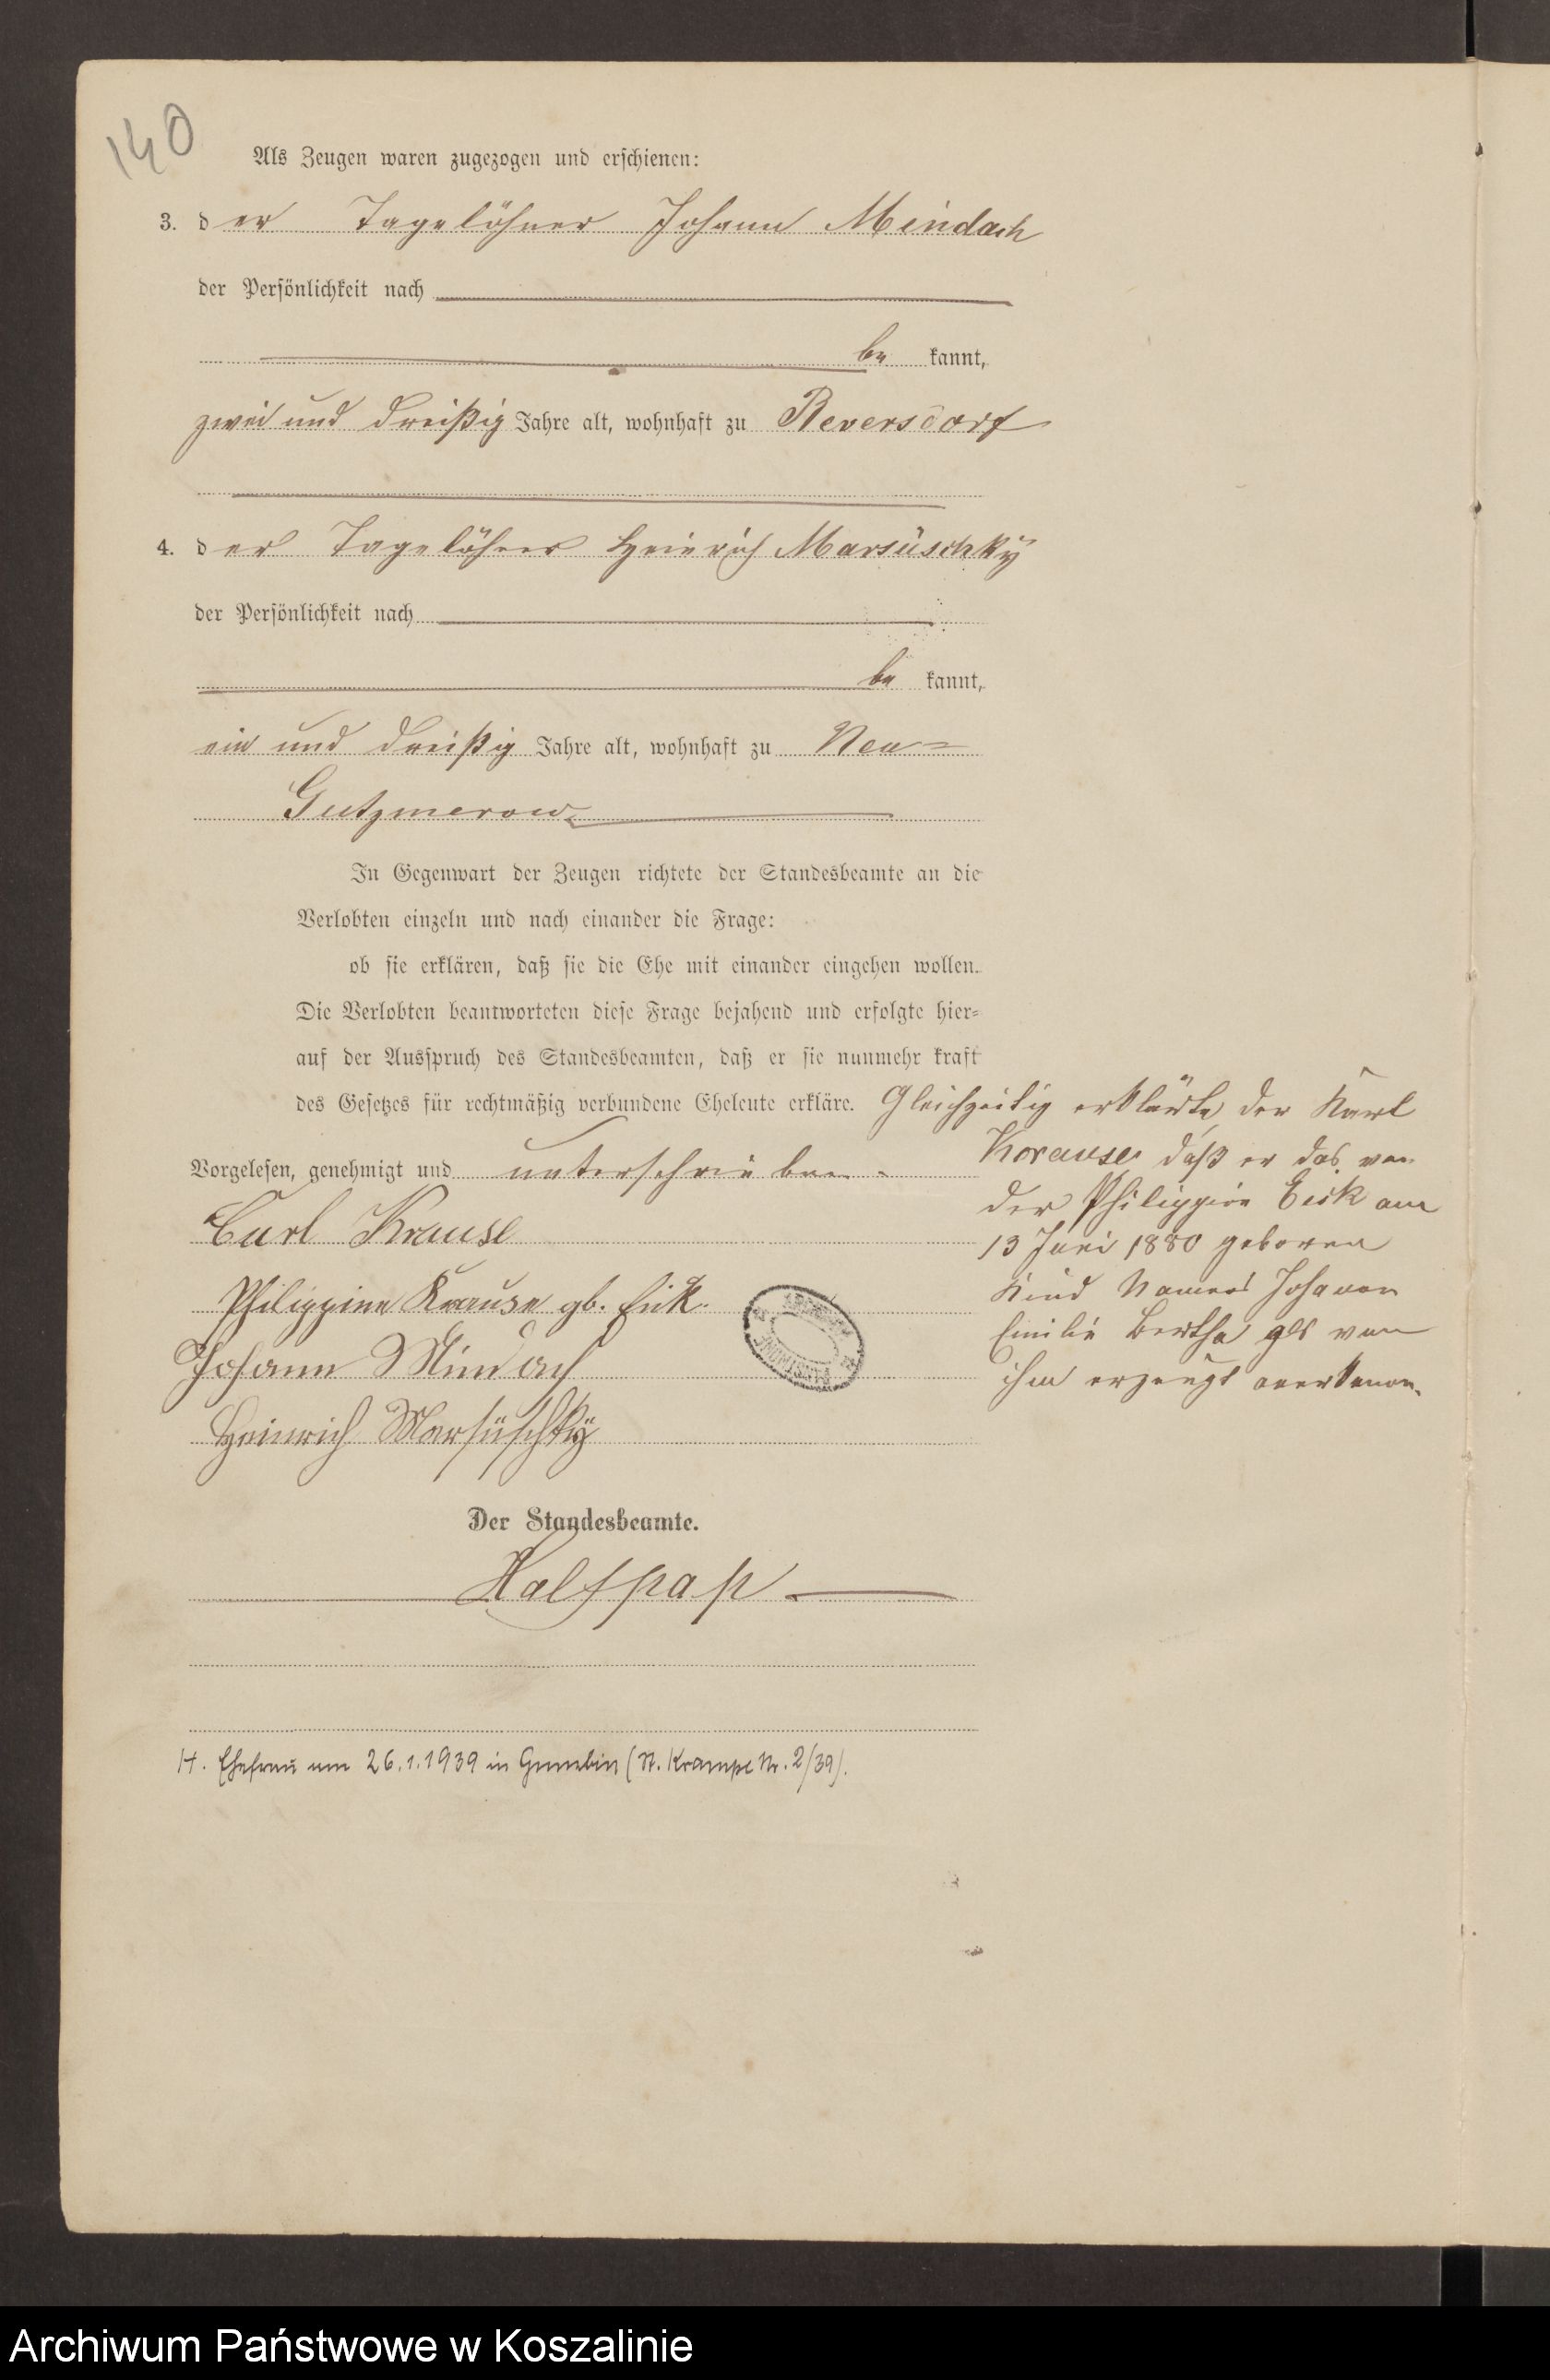 140
Als Zeugen waren zugezogen und erschienen:
3. der Tagelöhner Johann Mindach
der Persönlichkeit nach
be kannt,
zwei und dreißig Jahre alt, wohnhaft zu Reversdorf
4. der Tagelöhner Heinrich Marsüschky
der Persönlichkeit nach
be kannt,
ein und dreißig Jahre alt, wohnhaft zu Neu=
Gutzmerow
In Gegenwart der Zeugen richtete der Standesbeamte an die
Verlobten einzeln und nach einander die Frage:
ob sie erklären, daß sie die Ehe mit einander eingehen wollen.
Die Verlobten beantworteten diese Frage bejahend und erfolgte hier=
auf der Ausspruch des Standesbeamten, daß er sie nunmehr kraft
des Gesetzes für rechtmäßig verbundene Eheleute erkläre.
Gleichzeitig erklärte der Karl
Krause, daß er das von
der Philippine Eick am
13 Juni 1880 geborene
Kind Namens Johanne
Emilie Bertha als von
ihm erzeugt anerkenne.
Vorgelesen, genehmigt und unterschrieben.
Carl Krause
Philippine Krause gb. Eick.
Johann Mindach
Heinrich Marsüschky
Der Standesbeamte.
Halfpap
H. Ehefrau am 26.1.1939 in (St. Krampe Nr. 2/39).
Archiwum Państwowe w Koszalinie